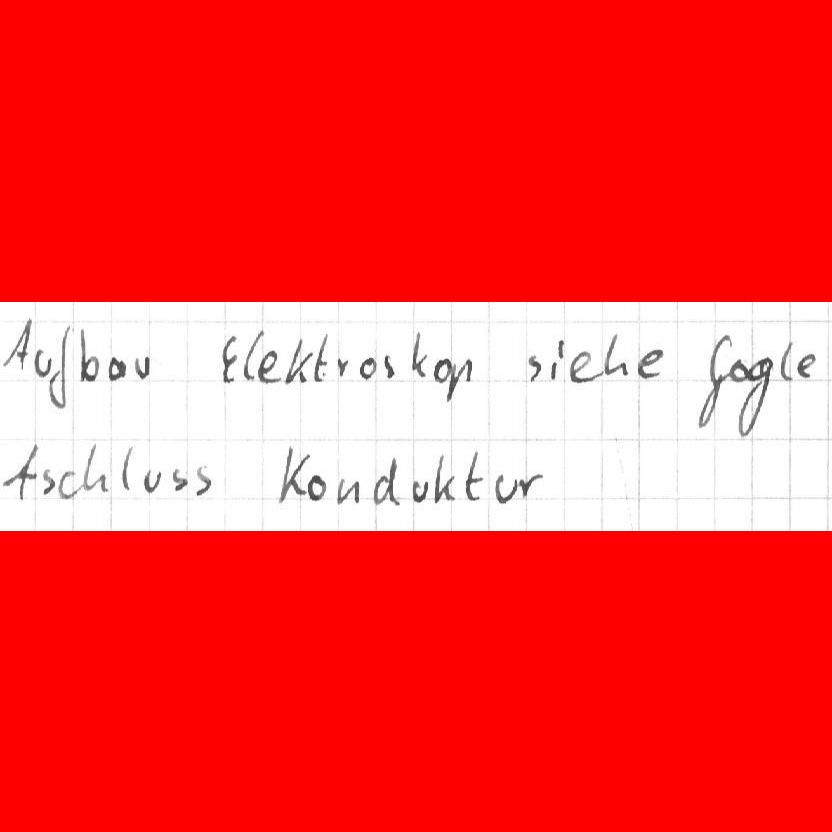 Aufbau Elektroskop siehe Gogle
Aschluss Konduktur